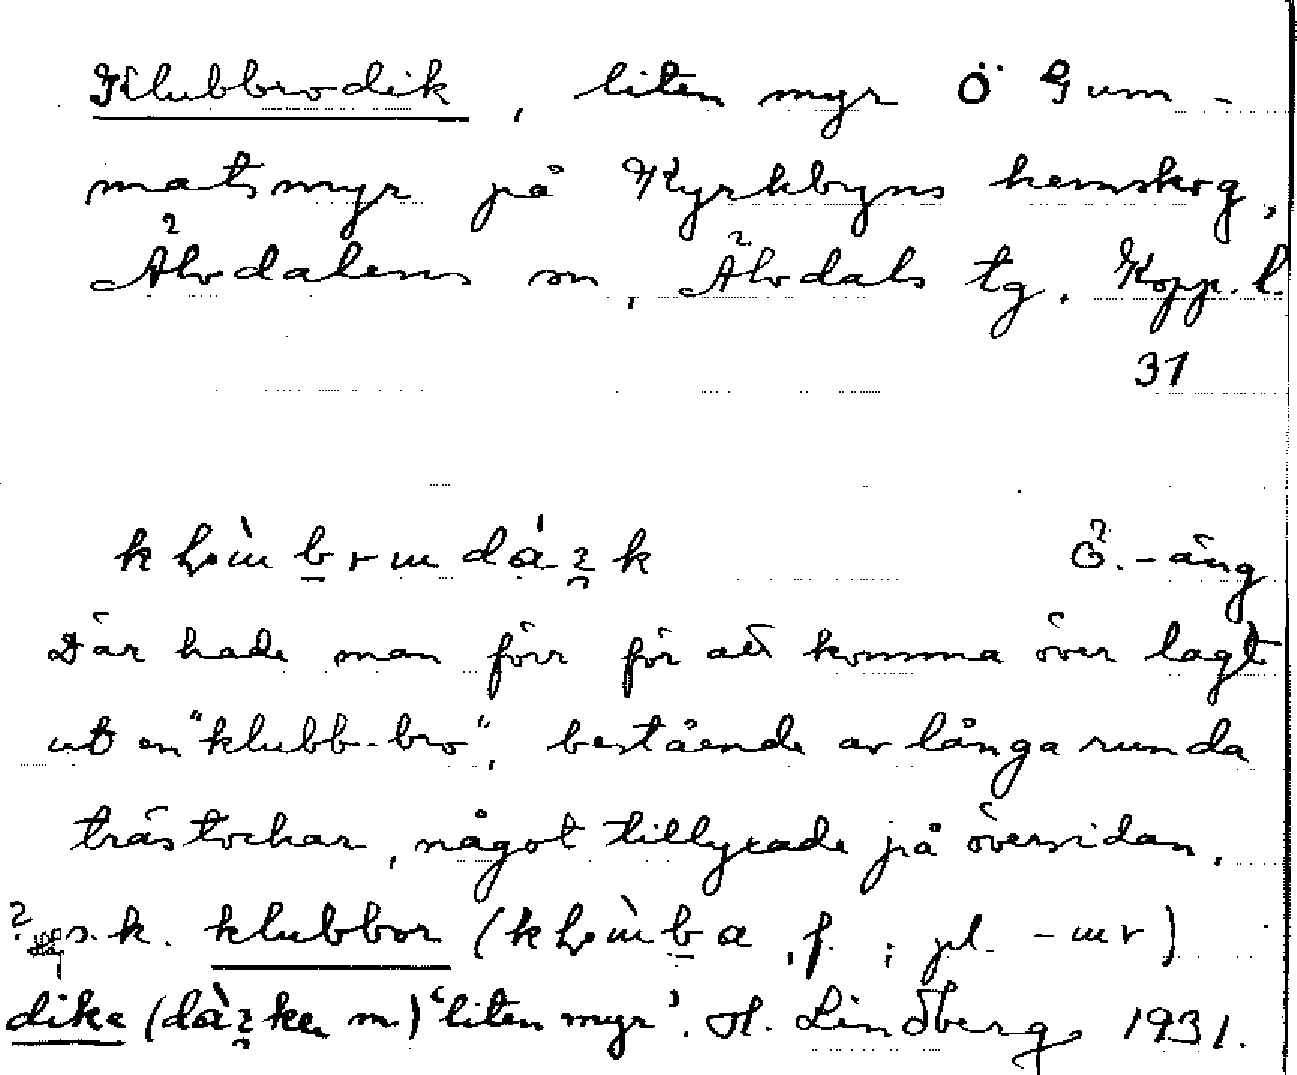 Klubbrodik, liten myr Ö Gum-
matsmyr på Kyrkbyns hemskog,
Älvdalens sn, Älvdals tg. Kopp. l.
31
Ö.-äng
Där hade man förr för att komma över lagt
ut en "klubb-bro", bestående av långa runda
trästockar, något tillyxade på översidan,
s.k. klubbor ( f.; pl. )
dike ( m.) 'liten myr'. H. Lindberg 1931.